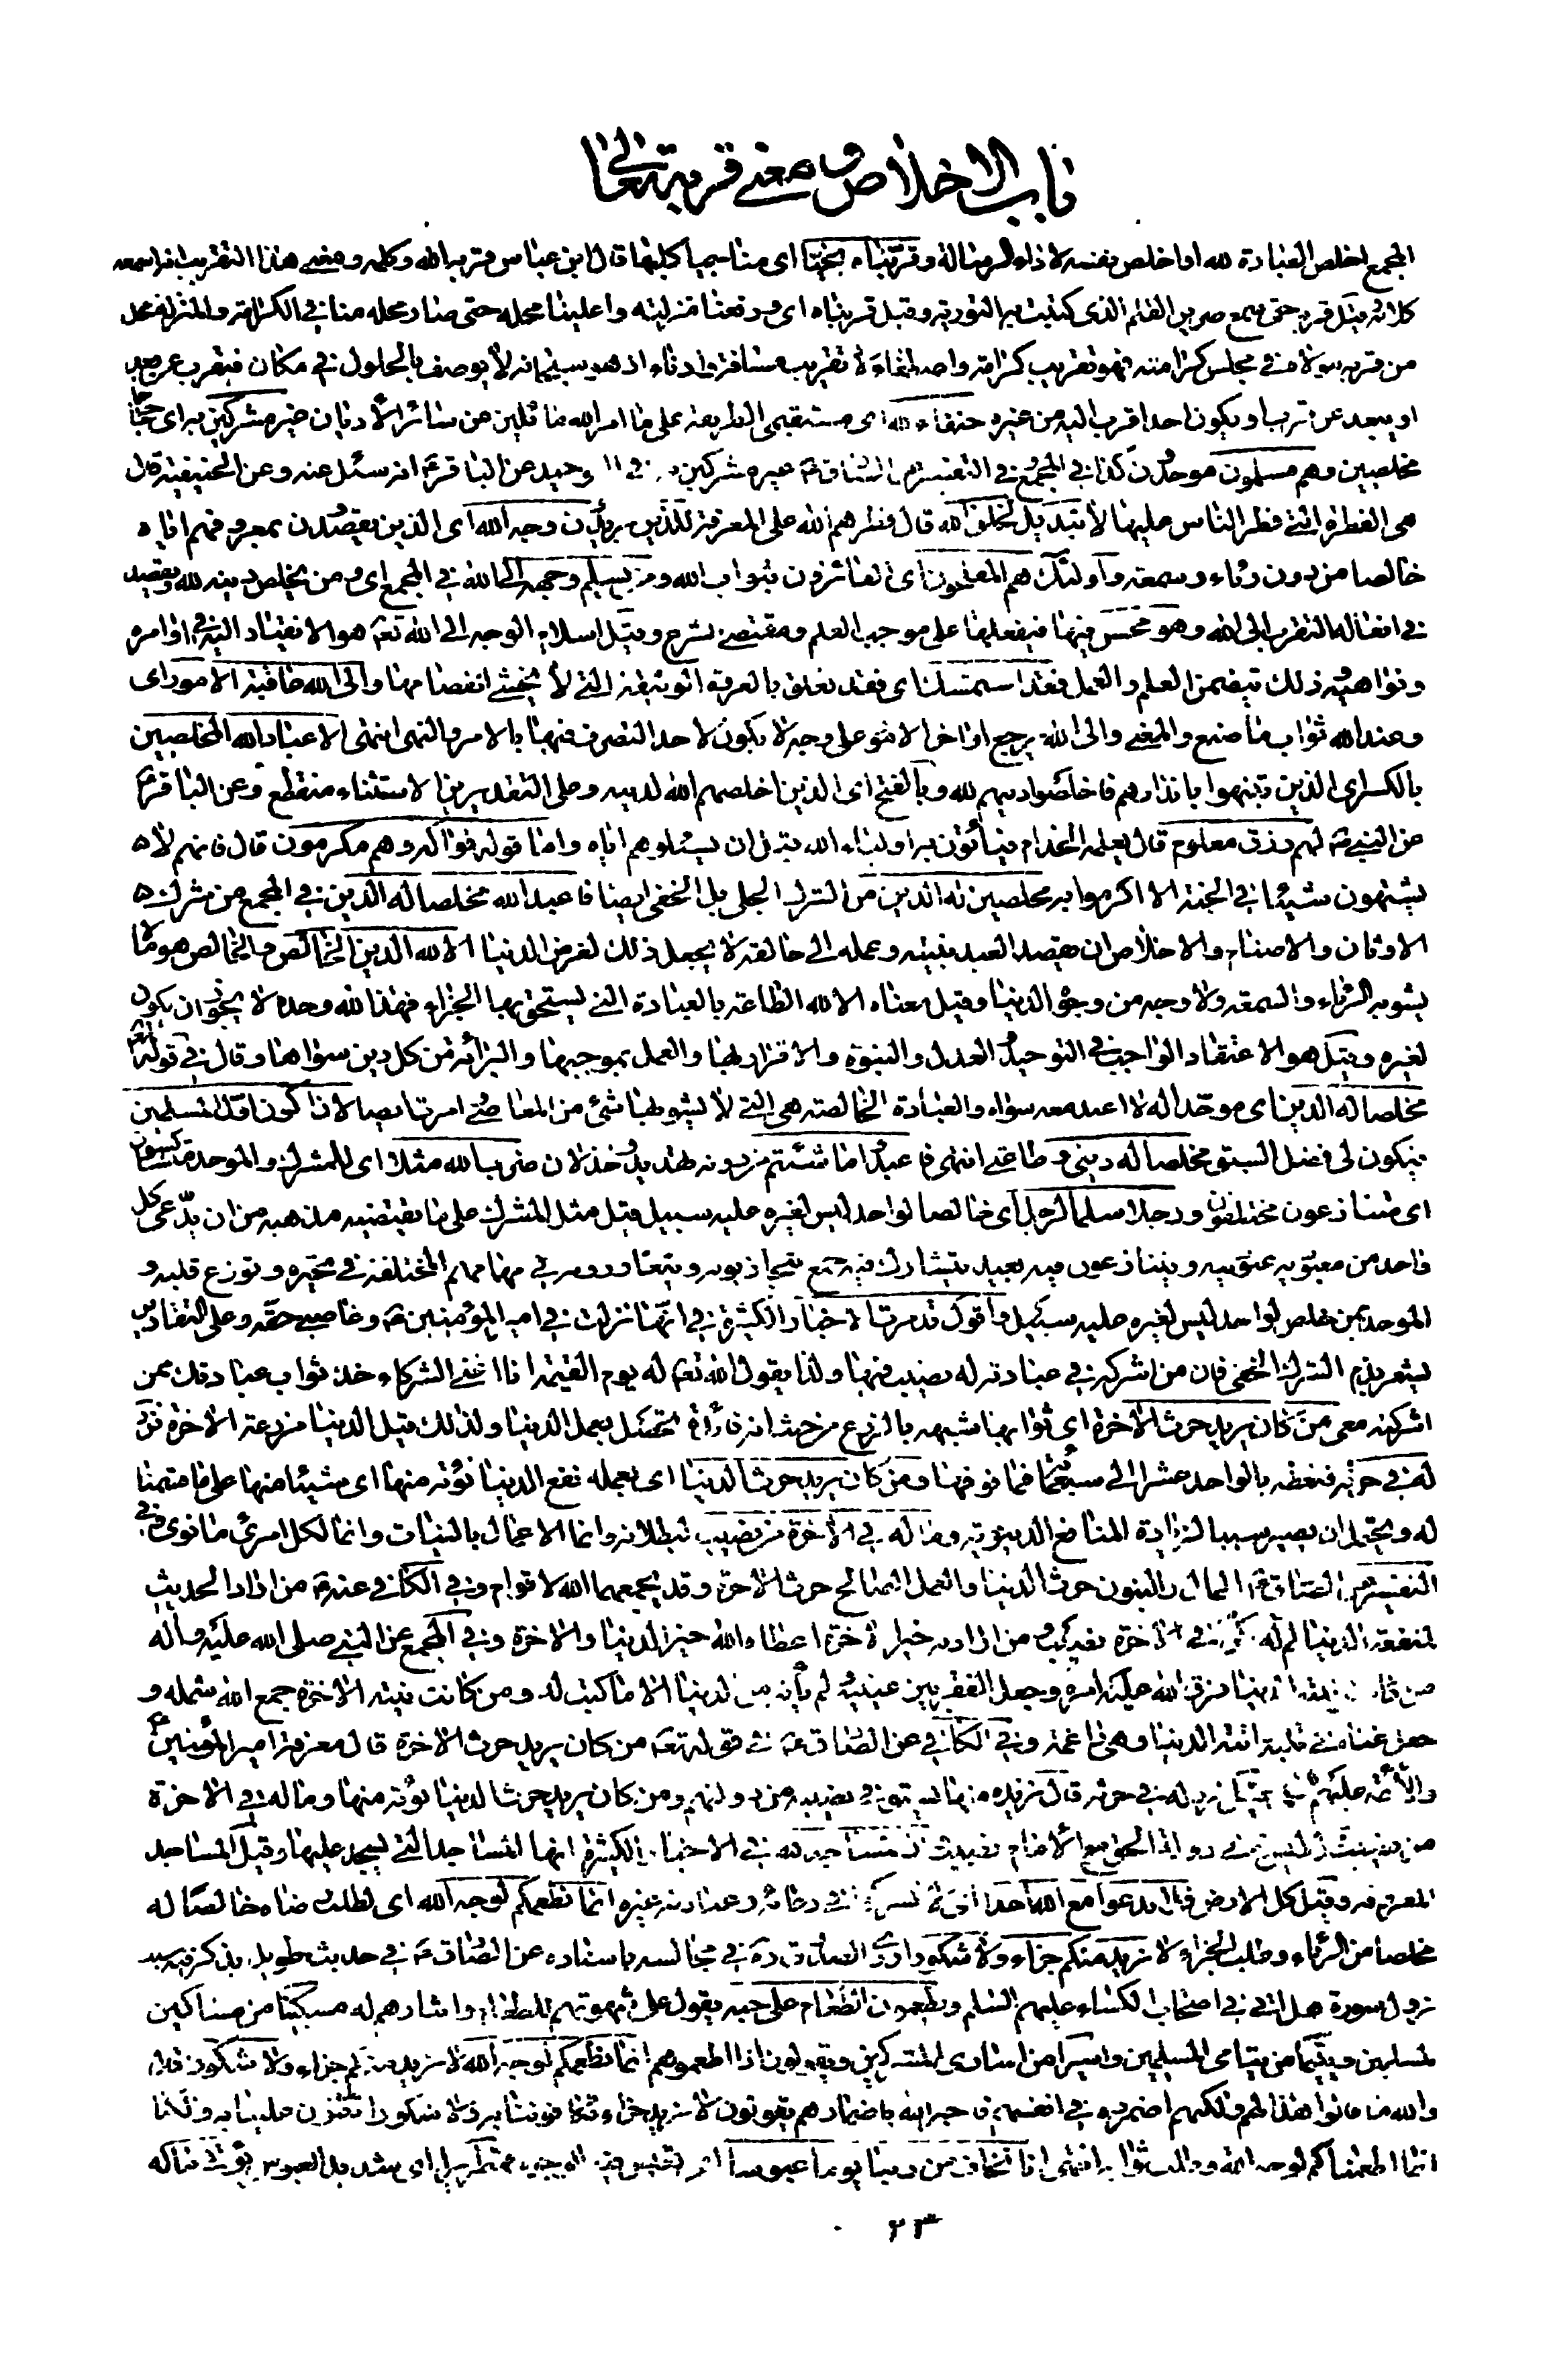 باب الاخلاص و معنى قربه تعالى
المجمع اخلص العبادة لله او اخلص نفسه لاداء الرسالة وقربناه نجيا اى مناجيا كليما قال ابن عباس قربه الله وكلمه ومعنى هذا التقريب انه اسمعه
كلامه وقيل قربه حتى سمع صرير القلم الذى كتبت به التورية وقيل قربناه اى ورفعنا منزلته واعلينا محله حتى صار محله منا فى الكرامة والمنزلة محل
من قربه مولاه فى مجلس كرامته فهو تقريب كرامة واصطفاء لا تقريب مسافة وادناء اذ هو سبحانه لا يوصف بالحلول فى مكان فيقرب عن بعد
او يبعد عن قرب او يكون احد اقرب اليه من غيره حنفاء لله اى مستقيمى الطريقة على ما امر الله مائلين عن سائر الاديان غير مشركين به اى حجاجا
مخلصين وهم مسلمون موحدون كذا فى المجمع و فى التفسير الصافى غير مشركين به فى التوحيد عن الباقر ع انه سئل عنه وعن الحنيفية قال
هى الفطرة التى فطر الناس عليها لا تبديل لخلق الله قال فطرهم الله على المعرفة للذين يريدون وجه الله اى الذين يقصدون بمعروفهم اياه
خالصا من دون رئاء وسمعة واولئك هم المفلحون اى الفائزون بثواب الله ومن يسلم وجهه الى الله فى المجمع اى ومن يخلص دينه لله ويقصد
فى افعاله التقرب الى الله وهو محسن فيها فيفعلها على موجب العلم ومقتضى الشرع وقيل اسلام الوجه الى الله تع هو الانقياد اليه فى اوامره
ونواهيه وذلك يتضمن العلم والعمل فقد استمسك اى فقد تعلق بالعروة الوثيقة التى لا يخشى انفصامها والى الله عاقبة الامور اى
وعند الله ثواب ما صنع والمعنى والى الله يرجع اواخر الامور على وجه لا يكون لاحد التصرف فيها بالامر والنهى انتهى الا عباد الله المخلصين
بالكسر اى الذين تنبهوا بانذارهم فاخلصوا دينهم لله وبالفتح اى الذين اخلصهم الله لدينه وعلى التقديرين الاستثناء منقطع وعن الباقر ع
عن النبى ص لهم رزق معلوم قال يعلمه الخدام فيأتون به اولياء الله قبل ان يسئلوهم اياه واما قوله فواكه وهم مكرمون قال فانهم لا
يشتهون شيئا فى الجنة الا اكرموا به مخلصين له الدين من الشرك الجلى بل الخفى ايضا فاعبد الله مخلصا له الدين فى المجمع من شرك
الاوثان والاصنام والاخلاص ان يقصد العبد بنيته وعمله الى خالقه لا يجعل ذلك لغرض الدنيا الا لله الدين الخالص والخالص هو ما لا
يشوبه الرئاء والسمعة ولا وجه من وجوه الدنيا وقيل معناه الا لله الطاعة بالعبادة التى يستحق بها الجزاء فهذا لله وحده لا يجوز ان يكون
لغيره وقيل هو الاعتقاد الواجب فى التوحيد والعدل والنبوة والاقرار بها والعمل بموجبها والبرائة من كل دين سواها وقال فى قوله تع
مخلصا له الدين اى موحدا له لا اعبد معه سواه والعبادة الخالصة هى التى لا يشوبها شئ من المعاصى وامرت ايضا لان اكون اول المسلمين
فيكون لى فضل السبق مخلصا له دينى وطاعتى انتهى فاعبدوا ما شئتم من دونه تهديد وخذلان ضرب الله مثلا اى للمشرك والموحد متشاكسون
اى متنازعون مختلفون ورجلا سلما لرجل اى خالصا لواحد ليس لغيره عليه سبيل قيل مثل المشرك على ما يقتضيه مذهبه من ان يدعى كل
واحد من معبوديه عبوديته ويتنازعون فيه بعبد يتشارك فيه جمع يتجاذبونه ويتعاورونه فى مهماتهم المختلفة فى تحيره وتوزع قلبه و
الموحد بمن خلص لواحد ليس لغيره عليه سبيل واقول قد مرت الاخبار الكثيرة فى انها نزلت فى امير المؤمنين ع وغاصبى حقه وعلى التقادير
يشعر بذم الشرك الخفى فان من اشرك فى عبادته له نصيب فيها ولذا يقول الله تع له يوم القيمة انا اغنى الشركاء خذ ثواب عبادتك ممن
اشركته معى من كان يريد حرث الاخرة اى ثوابها شبهه بالزرع من حيث انه فائدة تحصل بعمل الدنيا ولذلك قيل الدنيا مزرعة الاخرة نزد
له فى حرثه فنعطه بالواحد عشرا الى سبعمائة فما فوقها ومن كان يريد حرث الدنيا اى بعمله نفع الدنيا نؤته منها اى شيئا منها على ما قسمنا
له ويحتمل ان يصير سببا لزيادة المنافع الدنيوية وما له فى الاخرة من نصيب لبطلانه وانما الاعمال بالنيات وانما لكل امرئ ما نوى وفى
التفسير عن الصادق ع المال والبنون حرث الدنيا والعمل الصالح حرث الاخرة وقد يجمعهما الله لاقوام وفى الكافى عنه ع من اراد الحديث
لمنفعة الدنيا لم يكن له فى الاخرة نصيب ومن اراد به خير الاخرة اعطاه الله خير الدنيا والاخرة وفى المجمع عن النبى صلى الله عليه وآله
من كانت نيته الدنيا فرق الله عليه امره وجعل الفقر بين عينيه ولم يأته من الدنيا الا ما كتب له ومن كانت نيته الاخرة جمع الله شمله و
جعل غناه فى قلبه واتته الدنيا وهى راغمة وفى الكافى عن الصادق ع فى قوله تع من كان يريد حرث الاخرة قال معرفة امير المؤمنين ع
والائمة عليهم السلام قيل نزد له فى حرثه قال نزيده منها يستوفى نصيبه من دولتهم ومن كان يريد حرث الدنيا نؤته منها وما له فى الاخرة
من نصيب قال ليس له فى دولة الحق مع الامام نصيب وان المساجد لله فى الاخبار الكثيرة انها المساجد التى يسجد عليها وقيل المساجد
المعروفة وقيل كل الارض فلا تدعوا مع الله احدا اى لا تشرك فى دعائه وعبادته غيره انما نطعمكم لوجه الله اى لطلب رضاه خالصا له
مخلصا من الرئاء وطلب الجزاء لا نريد منكم جزاء ولا شكورا روى الصدوق ره فى مجالسه باسناده عن الصادق ع فى حديث طويل يذكر فيه سبب
نزول سورة هل اتى فى اصحاب الكساء عليهم السلم ويطعمون الطعام على حبه يقول على شهوتهم للطعام وايثارهم له مسكينا من مساكين
المسلمين ويتيما من يتامى المسلمين واسيرا من اسارى المشركين ويقولون اذا اطعموهم انما نطعمكم لوجه الله لا نريد منكم جزاء ولا شكورا قال
والله ما قالوا هذا لهم ولكنهم اضمروه فى انفسهم فاخبر الله باضمارهم يقولون لا نريد جزاء تكافوننا به ولا شكورا تثنون علينا به ولكنا
انما اطعمناكم لوجه الله وطلب ثوابه انتهى انا نخاف من ربنا يوما عبوسا اى تعبس فيه الوجوه قمطريرا اى شديد العبوس يؤتى ماله
٢٣